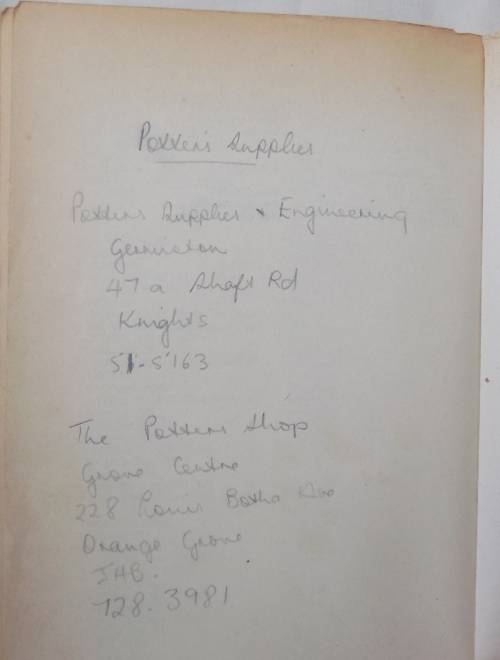 Potters Supplies
Potters Supplies & Engineering
Germiston
47 a Shaft Rd
Knights
51-5163
The Potters Shop
Grove Centre
228 Louis Botha Ave
Orange Grove
JHB.
728.3981